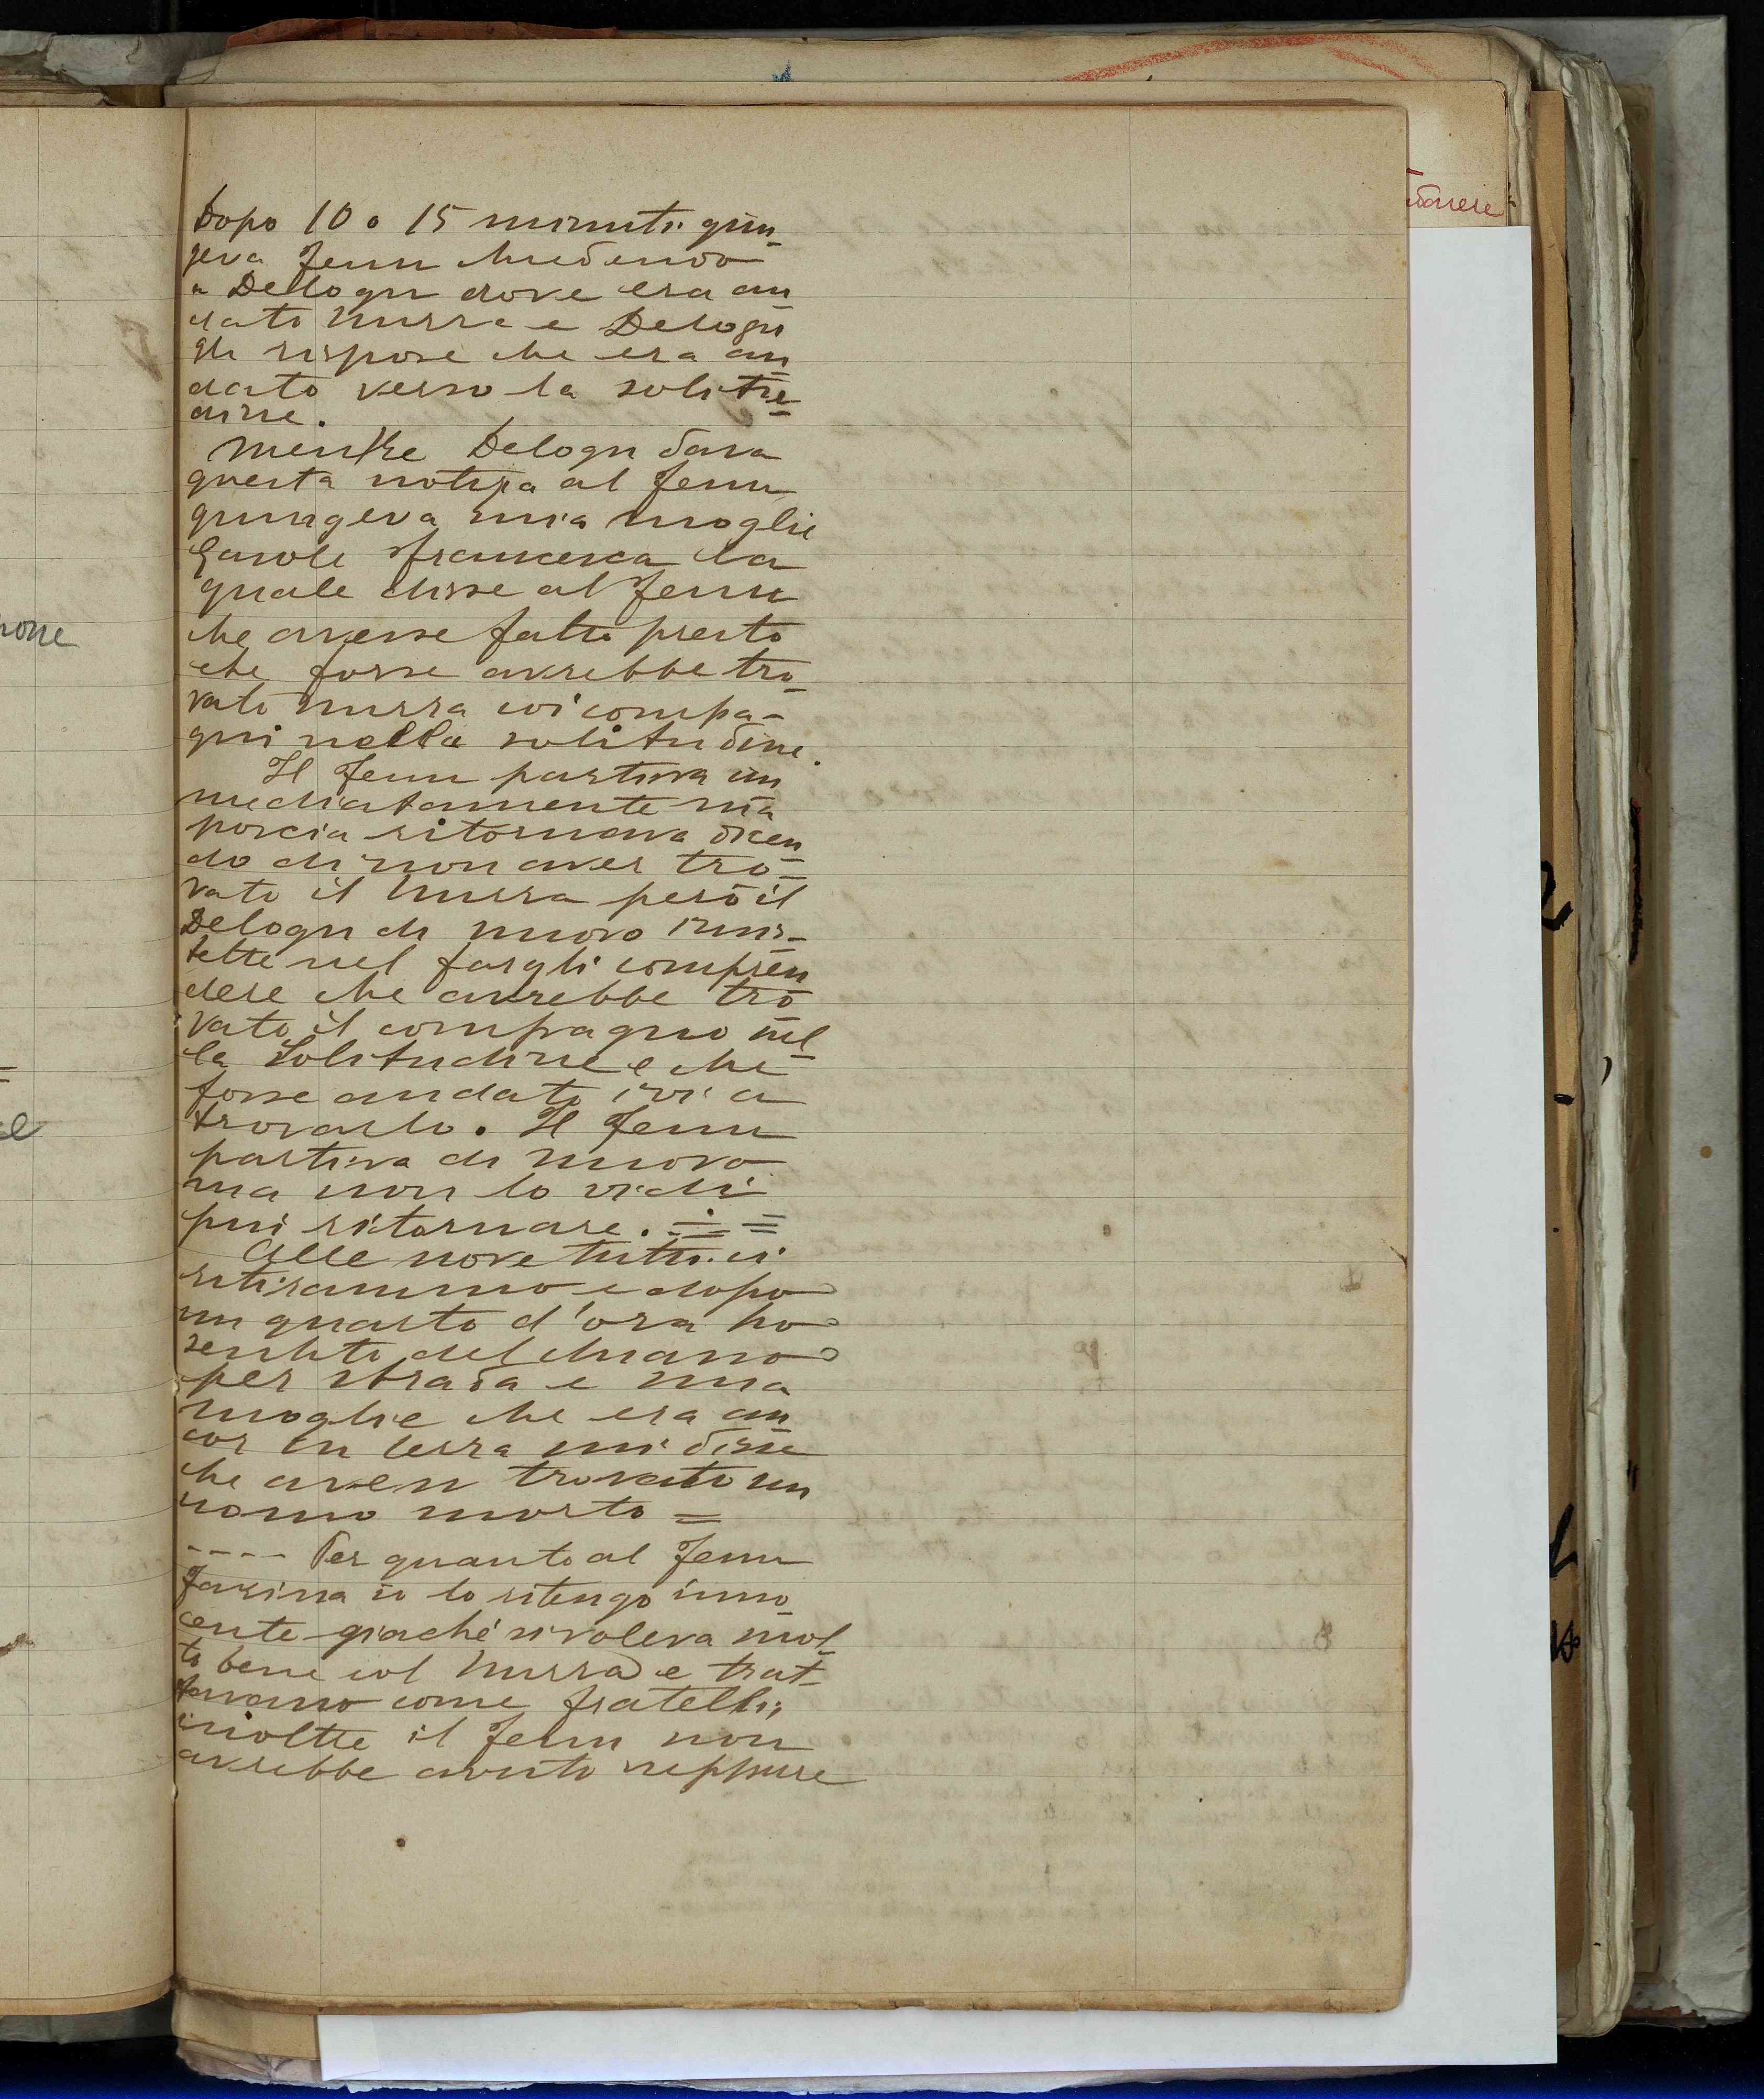 Dopo 10 o 15 minuti giun-
geva Fenu chiedendo
a Delogu dove era an
dato Nurra e Delogu
gli rispose che era an
dato verso la solitu-
dine.
Mentre Delogu dava
questa notizia al Fenu
giungeva mia moglie
Garole Francesca la
quale disse al Fenu
che avesse fatto presto
che forse avrebbe tro-
vato Nurra coi compa-
gni nella solitudine.
Il Fenu partiva im
mediatamente ma
poscia ritornava dicen
do di non aver tro-
vato il Nurra però il
Delogu di nuovo insis-
tette nel fargli compren
dere che avrebbe tro
vato il compagno nel-
la Solitudine e che
fosse andato ivi a
trovarlo. Il Fenu
partiva di nuovo
ma non lo vidi
più ritornare. = =
Alle nove tutti ci
ritirammo e dopo
un quarto d'ora ho
sentito del chiasso
per strada e mia
moglie che era an
cor in terra mi disse
che aven trovato un
uomo morto =
---- Per quanto al Fenu
Favina io lo ritengo inno
cente giaché si voleva mol-
to bene col Nurra e trat-
tavano come fratelli,
inoltte il Fenu non
avrebbe avuto neppure
none